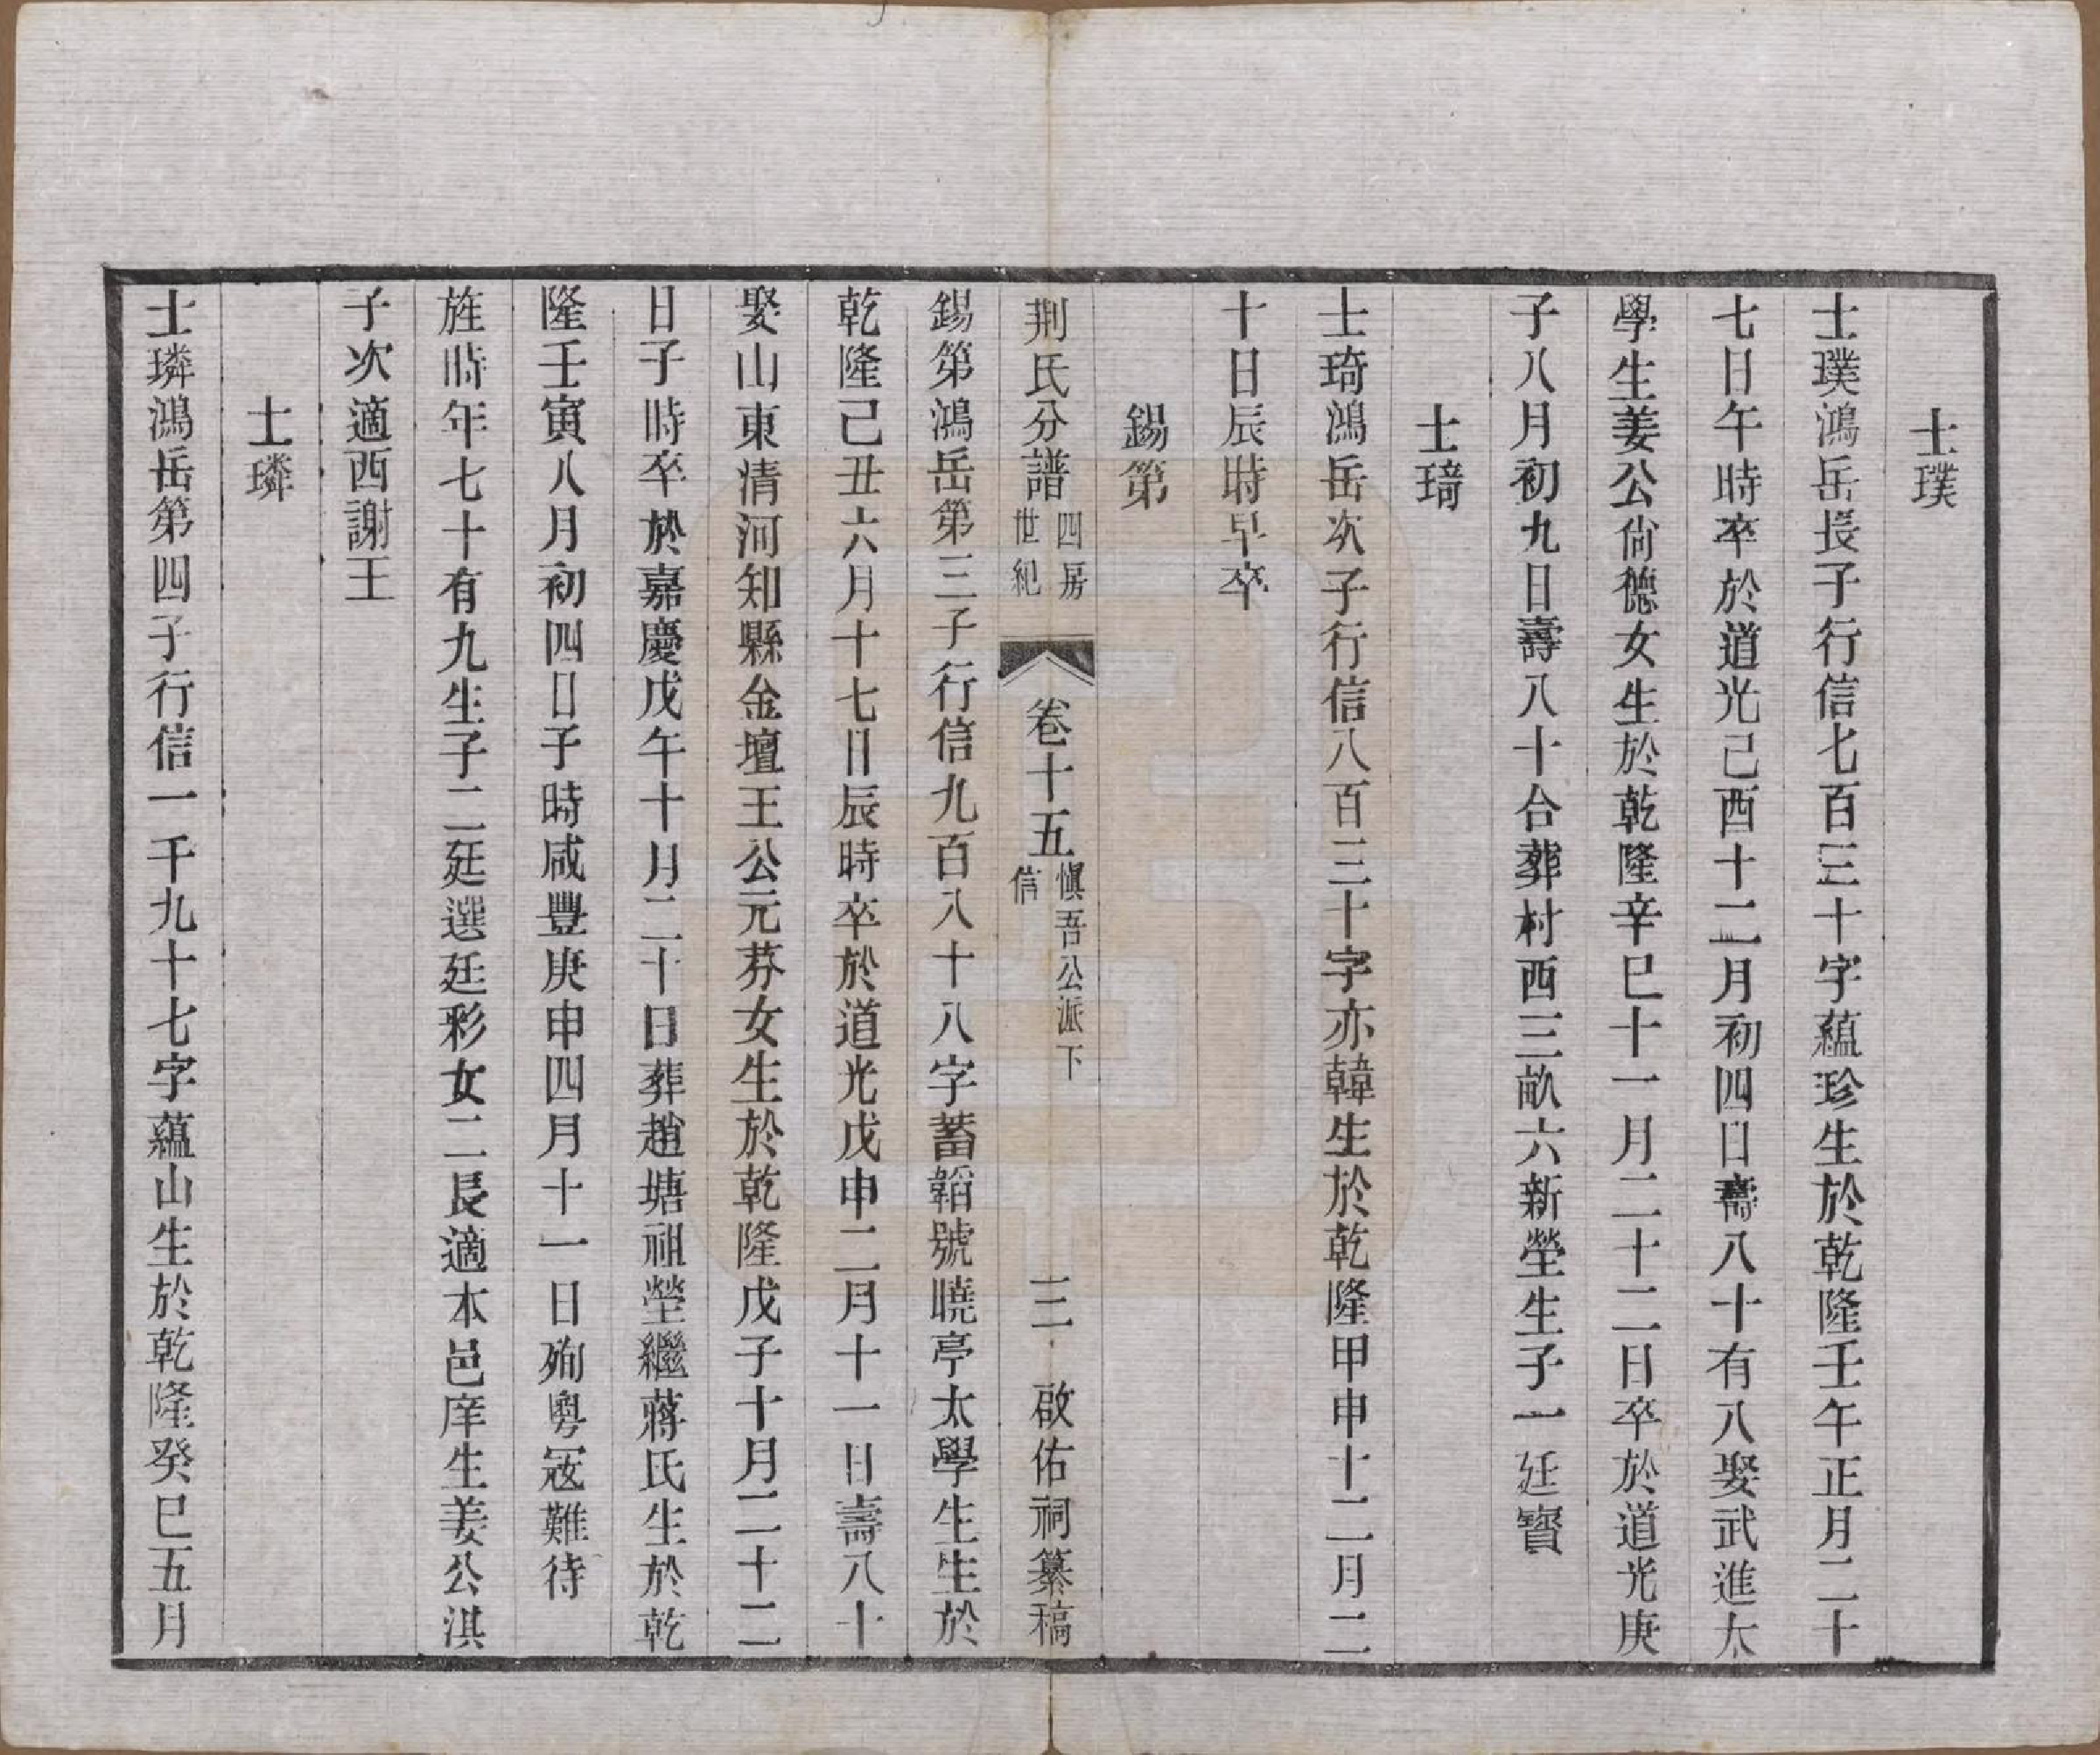 士璞
士璞鴻岳長子行信七百三十字蘊珍生於乾隆壬午正月二十
七日午時卒於道光己酉十二月初四日壽八十有八娶武進太
學生姜公尙德女生於乾隆辛巳十一月二十二日卒於道光庚
子八月初九日壽八十合葬村西三畝六新塋生子一廷寶
士琦
士琦鴻岳次子行信八百三十字亦韓生於乾隆甲申十二月二
十日辰時早卒
錫第
荆氏分譜 四房世紀 卷十五 愼吾公派下信 三 啟佑祠纂稿
錫第鴻岳第三子行信九百八十八字蓄韜號曉亭太學生生於
乾隆己丑六月十七日辰時卒於道光戊申二月十一日壽八十
娶山東清河知縣金壇王公元莽女生於乾隆戊子十月二十二
日子時卒於嘉慶戊午十月二十日葬趙塘祖塋繼蔣氏生於乾
隆壬寅八月初四日子時咸豐庚申四月十一日殉粵冦難待
旌時年七十有九生子二廷選廷彩女二長適本邑庠生姜公淇
子次適西謝王
士璘
士璘鴻岳第四子行信一千九十七字蘊山生於乾隆癸巳五月